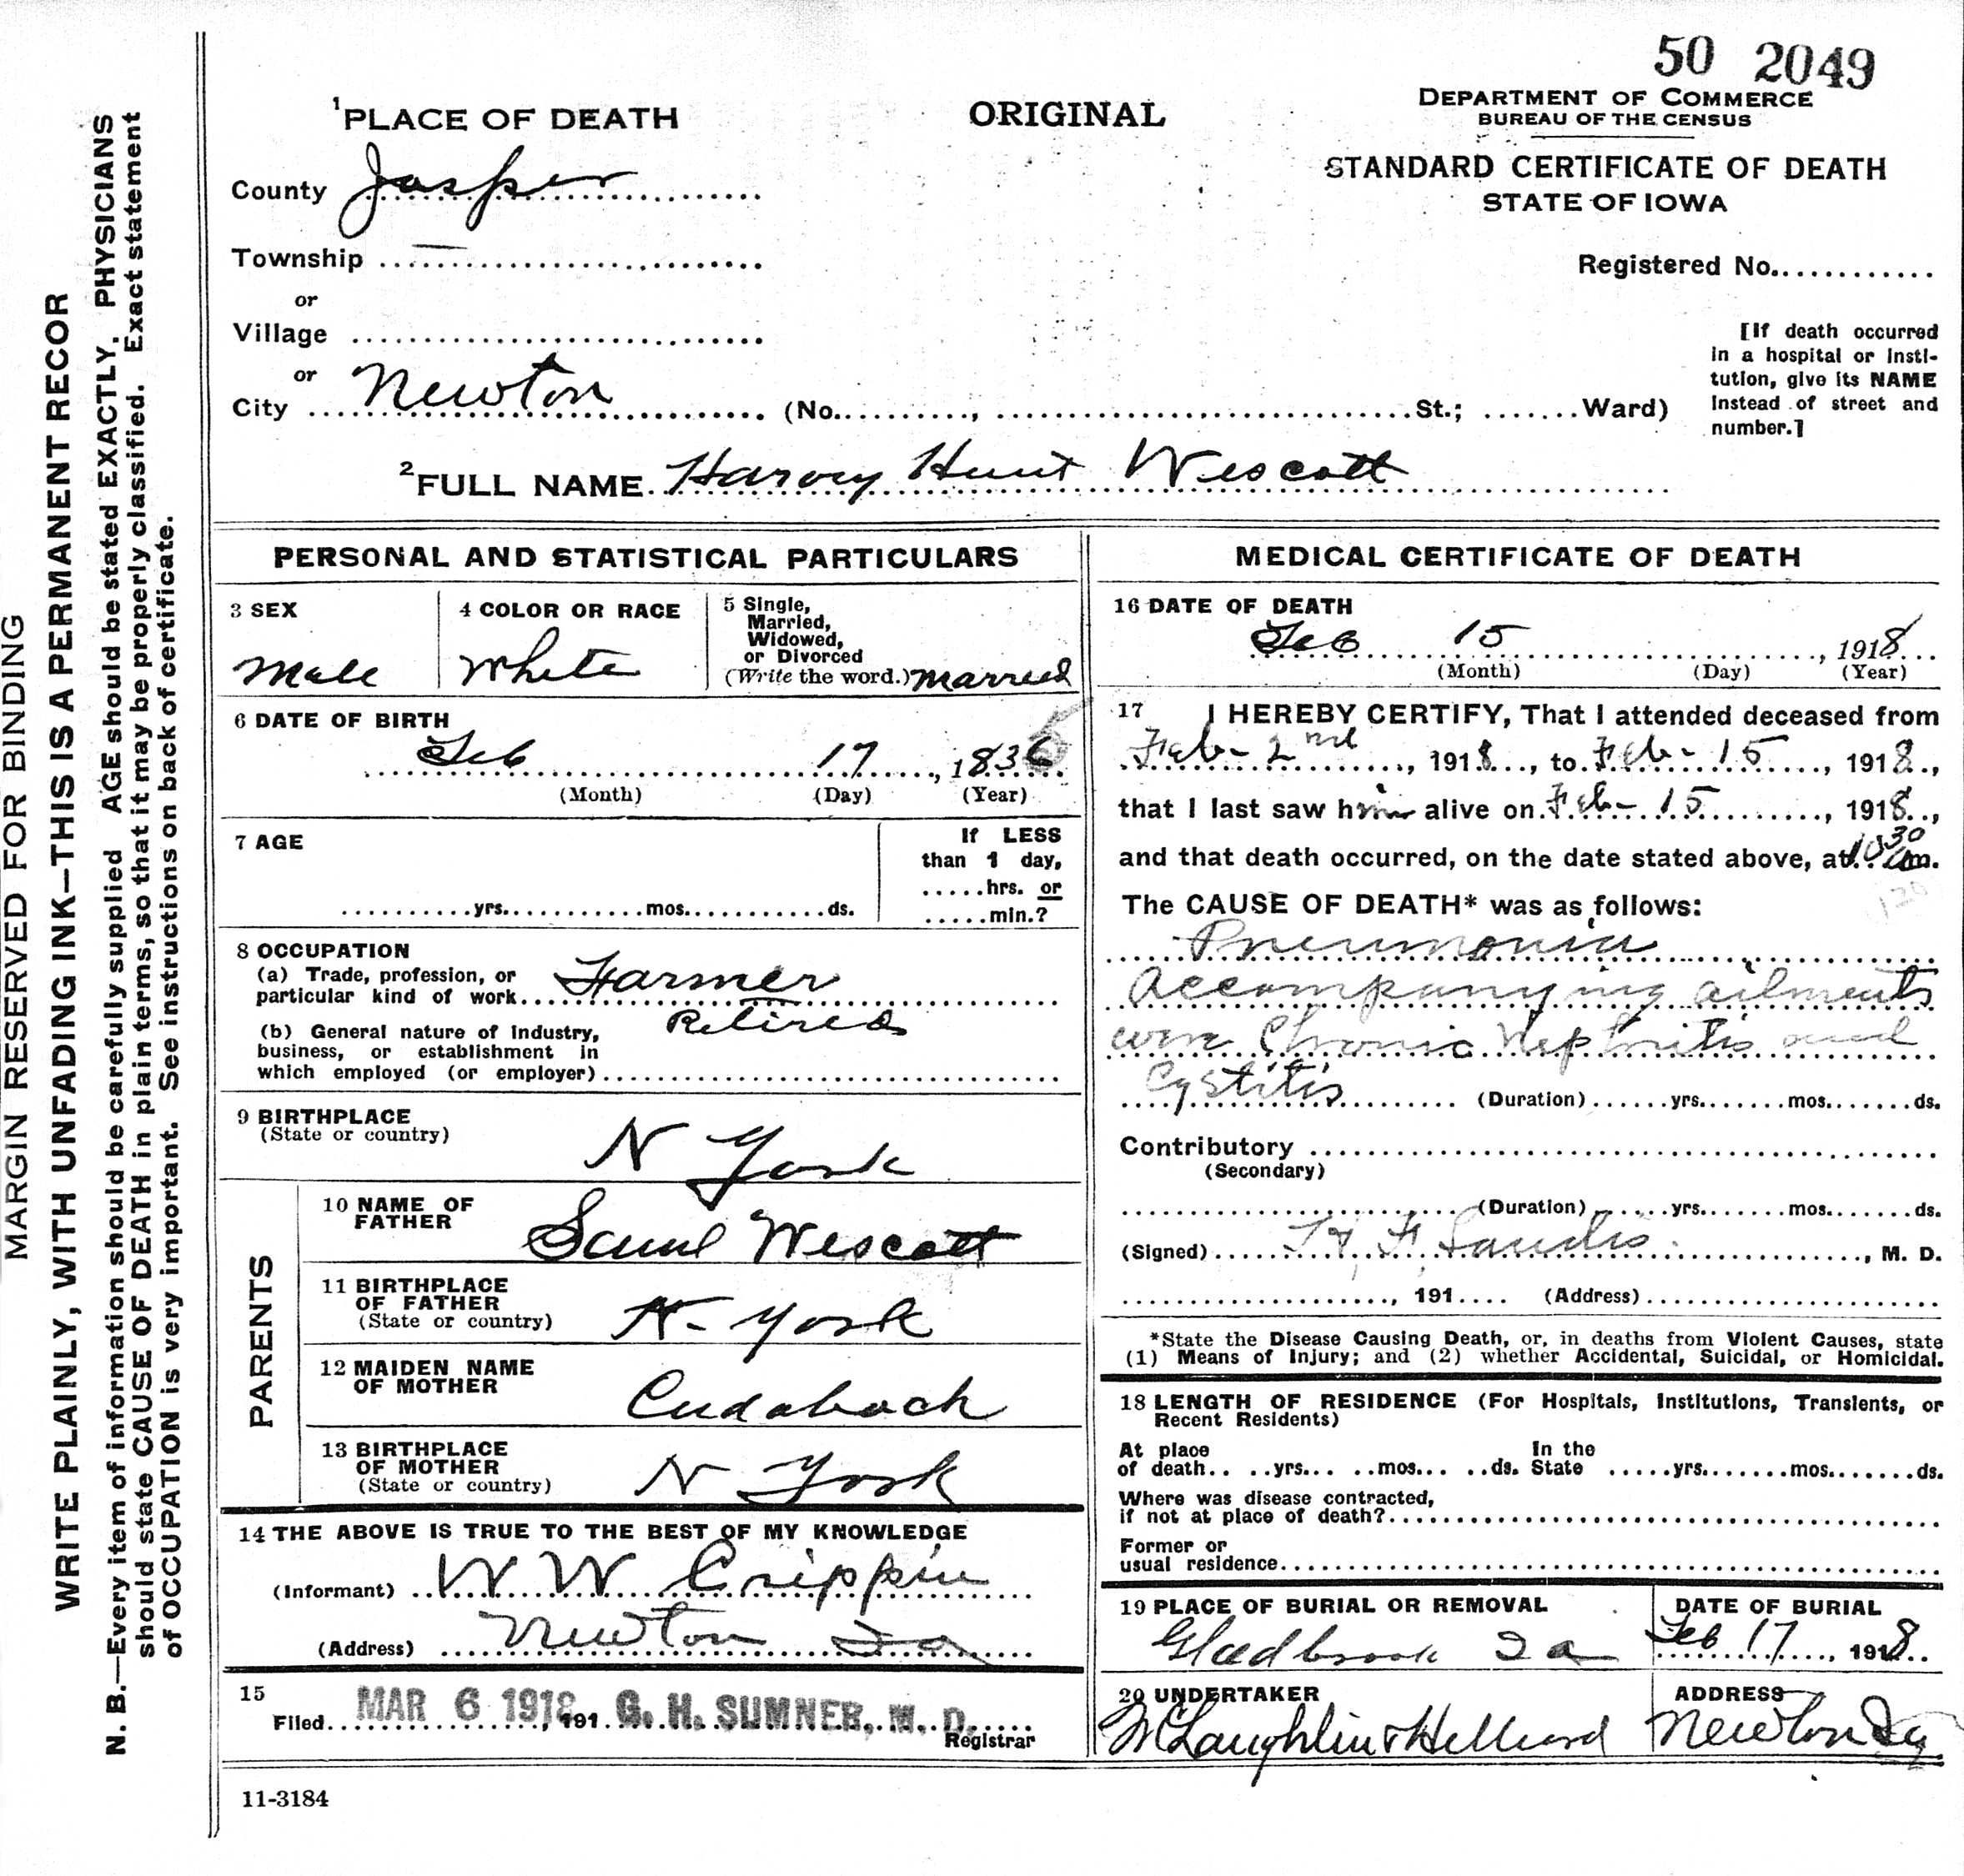 50 2049
DEPARTMENT OF COMMERCE
BUREAU OF THE CENSUS
STANDARD CERTIFICATE OF DEATH
STATE OF IOWA
ORIGINAL
1 PLACE OF DEATH
County Jasper
Township
or
Village
or
City Newton (No. , St.; Ward)
Registered No.
[If death occurred
in a hospital or insti-
tution, give its NAME
instead of street and
number.]
2 FULL NAME Harvey Hunt Wescott
PERSONAL AND STATISTICAL PARTICULARS
3 SEX
Male
4 COLOR OR RACE
White
5 Single,
Married,
Widowed,
or Divorced
(Write the word.) married
6 DATE OF BIRTH
Feb 17, 1836
(Month) (Day) (Year)
7 AGE
yrs. mos. ds.
If LESS
than 1 day,
hrs. or
min.?
8 OCCUPATION
(a) Trade, profession, or
particular kind of work Farmer
Retired
(b) General nature of industry,
business, or establishment in
which employed (or employer)
9 BIRTHPLACE
(State or country)
N York
PARENTS
10 NAME OF
FATHER
Saml Wescott
11 BIRTHPLACE
OF FATHER
(State or country)
N- York
12 MAIDEN NAME
OF MOTHER
Cudaback
13 BIRTHPLACE
OF MOTHER
(State or country)
N York
14 THE ABOVE IS TRUE TO THE BEST OF MY KNOWLEDGE
(Informant) W W Crippin
(Address) Newton Ia
15
Filed MAR 6 1918, 191 G. H. SUMNER, M. D.
Registrar
11-3184
MEDICAL CERTIFICATE OF DEATH
16 DATE OF DEATH
Feb 15, 1918
(Month) (Day) (Year)
17 I HEREBY CERTIFY, That I attended deceased from
Feb- 2nd, 1918, to Feb- 15, 1918,
that I last saw him alive on Feb- 15, 1918,
and that death occurred, on the date stated above, at 1030 am.
The CAUSE OF DEATH* was as follows:
Pneumonia
Accompanying ailments
were Chronic Nephritis and
Cystitis (Duration) yrs. mos. ds.
Contributory
(Secondary)
(Duration) yrs. mos. ds.
(Signed) H F Landis, M. D.
, 191 (Address)
*State the Disease Causing Death, or, in deaths from Violent Causes, state
(1) Means of Injury; and (2) whether Accidental, Suicidal, or Homicidal.
18 LENGTH OF RESIDENCE (For Hospitals, Institutions, Transients, or
Recent Residents)
At place
of death yrs. mos. ds.
In the
State yrs. mos. ds.
Where was disease contracted,
if not at place of death?
Former or
usual residence
19 PLACE OF BURIAL OR REMOVAL
Gladbrook Ia
DATE OF BURIAL
Feb 17, 1918
20 UNDERTAKER
McLaughlin & Helleard
ADDRESS
Newton Ia
MARGIN RESERVED FOR BINDING
WRITE PLAINLY, WITH UNFADING INK—THIS IS A PERMANENT RECOR
N. B.—Every item of information should be carefully supplied AGE should be stated EXACTLY. PHYSICIANS
should state CAUSE OF DEATH in plain terms, so that it may be properly classified. Exact statement
of OCCUPATION is very important. See instructions on back of certificate.